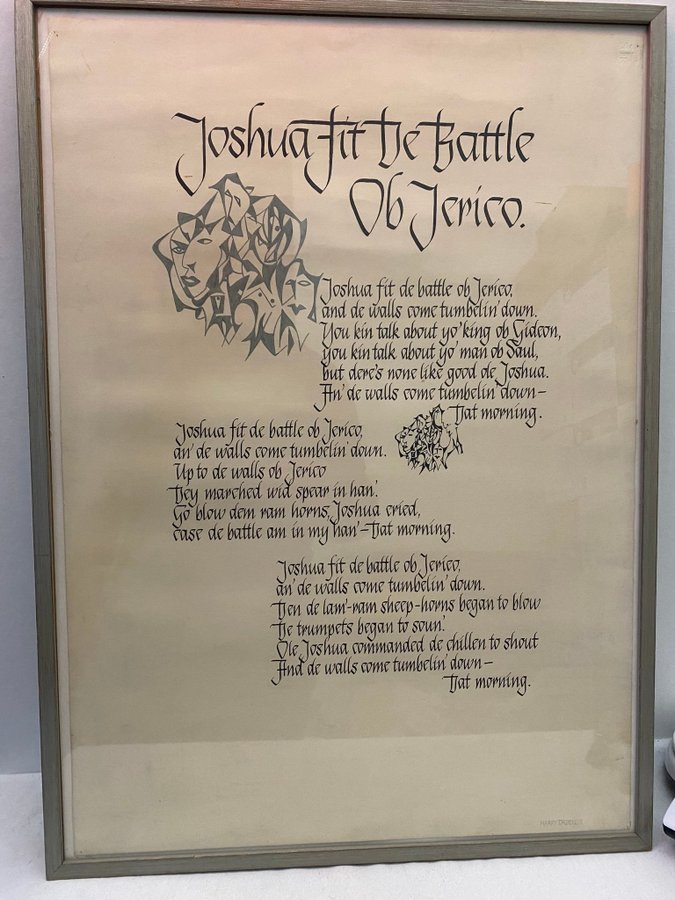 Joshua Fit De Battle
Ob Jerico.
Joshua fit de battle ob Jerico,
and de walls come tumbelin' down.
You kin talk about yo' king ob Gideon,
you kin talk about yo' man ob Saul,
but dere's none like good ole Joshua.
An' de walls come tumbelin' down—
Dat morning.
Joshua fit de battle ob Jerico,
an' de walls come tumbelin' down.
Up to de walls ob Jerico
Dey marched wid spear in han'.
Go blow dem ram horns, Joshua cried,
case de battle am in my han'—Dat morning.
Joshua fit de battle ob Jerico,
an' de walls come tumbelin' down.
Den de lam'-ram sheep-horns began to blow
De trumpets began to soun'.
Ole Joshua commanded de chillen to shout
And de walls come tumbelin' down—
Dat morning.
HARRY